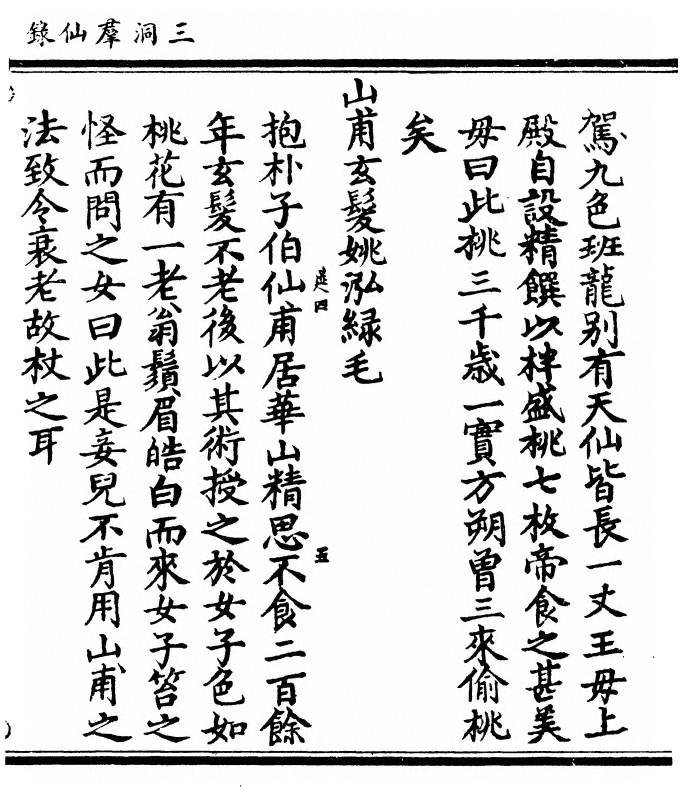 三洞羣仙錄
駕九色班龍别有天仙皆長一丈王毋上
殿自設精饌以柈盛桃七枚帝食之甚美
毋曰此桃三千歳一實方朔曾三來偷桃
矣
山甫玄髮姚泓緑毛
抱朴子伯仙甫居華山精思不食二百餘
年玄髮不老後以其術授之於女子色如
桃花有一老翁鬚眉皓白而來女子笞之
怪而問之女曰此是妾兒不肯用山甫之
法致令衰老故杖之耳
五